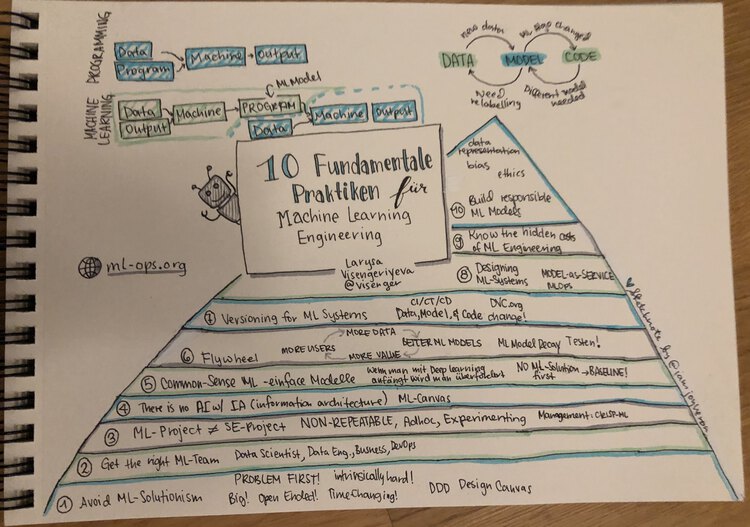 PROGRAMMING
Data
Program
Machine
Output
MACHINE LEARNING
Data
Output
Machine
PROGRAM
ML Model
Data
Machine
Output
new data
DATA
MODEL
CODE
Need relabelling
Different model needed
10 Fundamentale
Praktiken für
Machine Learning
Engineering
Larysa
Visengeriyeva
@visenger
ml-ops.org
data
representation
bias
ethics
10 Build responsible
ML Models
9 Know the hidden costs
of ML Engineering
8 Designing
ML-Systems
MODEL-AS-SERVICE
MLOps
7 Versioning for ML Systems
CI/CT/CD
Data, Model, & Code change!
DVC.org
6 Flywheel
MORE DATA
MORE USERS
BETTER ML MODELS
MORE VALUE
ML Model Decay Testen!
5 Common-Sense ML - einfache Modelle
Wenn man mit Deep Learning
anfängt wird man überfordert
NO ML-Solution
first → BASELINE!
4 There is no AI w/ IA (information architecture) ML-Canvas
3 ML-Project ≠ SE-Project NON-REPEATABLE, Adhoc, Experimenting Management: CRISP-ML
2 Get the right ML-Team Data Scientist, Data Eng., Business, DevOps
PROBLEM FIRST! intrinsically hard!
1 Avoid ML-Solutionism Big! Open Ended! Time-Changing! DDD Design Canvas
Sketchnote by